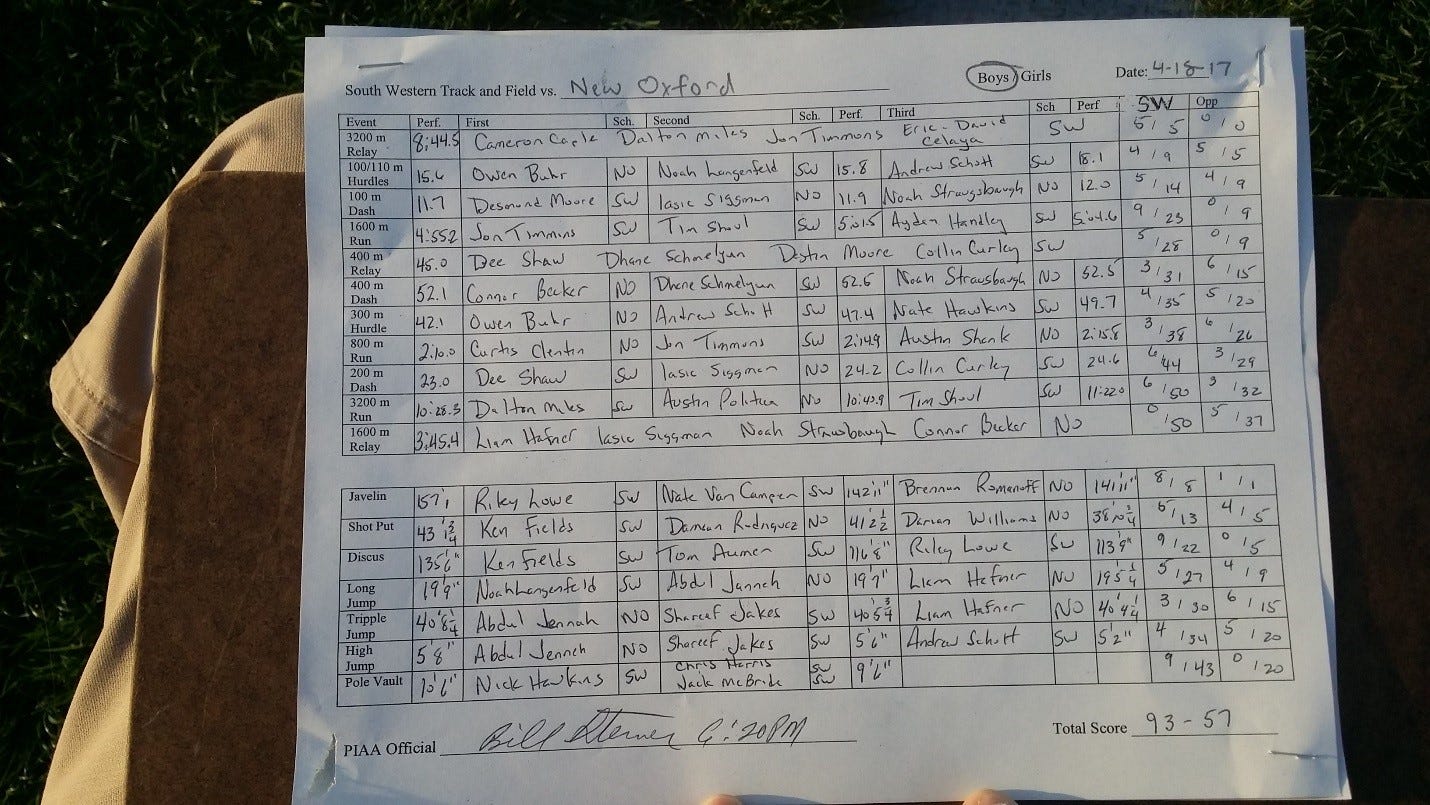 South Western Track and Field vs. New Oxford Boys Girls Date: 4-18-17
Event Perf. First Sch. Second Sch. Perf. Third Sch Perf SW Opp
3200 m Relay 8:44.5 Cameron Dalton Miles Jon Timmons Eric-David Celaya SW 5/5 0/0
100/110 m Hurdles 15.6 Owen Buhr NO Noah Langenfeld SW 15.8 Andrew Schott SW 18.1 4/9 5/5
100 m Dash 11.7 Desmond Moore SW Iasic Siggman NO 11.9 Noah Strausbaugh NO 12.0 5/14 4/9
1600 m Run 4:552 Jon Timmins SW Tim Shoul SW 5:01.5 Ayden Handley SW 5:04.6 9/23 0/9
400 m Relay 45.0 Dee Shaw Dhane Schmelyun Destin Moore Collin Curley SW 5/28 0/9
400 m Dash 52.1 Connor Becker NO Dhane Schmelyun SW 52.5 Noah Strausbaugh NO 52.5 3/31 6/15
300 m Hurdle 42.1 Owen Buhr NO Andrew Schott SW 47.4 Nate Hawkins SW 49.7 4/35 5/20
800 m Run 2:10.0 Curtis Clentin NO Jon Timmons SW 2:14.9 Austin Shenk NO 2:15.8 3/38 6/26
200 m Dash 23.0 Dee Shaw SW Iasic Siggman NO 24.2 Collin Curley SW 24.6 6/44 3/29
3200 m Run 10:28.3 Dalton Miles SW Austin NO 10:40.9 Tim Shoul SW 11:22.0 6/50 3/32
1600 m Relay 3:45.4 Liam Hafner Iasic Siggman Noah Strausbaugh Connor Becker NO 0/50 5/37
Javelin 157'1 Riley Lowe SW Nate Van Campen SW 142'11" Brennun Romanoff NO 141'11" 8/8 1/1
Shot Put 43'1 3/4 Ken Fields SW Damean Rodriguez NO 41'2 1/2 Darian Williams NO 38'10 3/4 5/13 4/5
Discus 135'6" Ken Fields SW Tom Aumen SW 116'8" Riley Lowe SW 113'9" 9/22 0/5
Long Jump 19'9" Noah Langenfeld SW Abdul Janneh NO 19'7" Liam Hafner NO 19'5 1/4 5/27 4/9
Tripple Jump 40'8 1/4 Abdul Jennah NO Shareef Jakes SW 40'5 3/4 Liam Hafner NO 40'4 1/4 3/30 6/15
High Jump 5'8" Abdul Jenneh NO Shareef Jakes SW 5'6" Andrew Schott SW 5'2" 4/34 5/20
Pole Vault 10'6" Nick Hawkins SW Chris Harris Jack McBride SW SW 9'6" 9/43 0/20
PIAA Official Bill 6:20PM Total Score 93-57